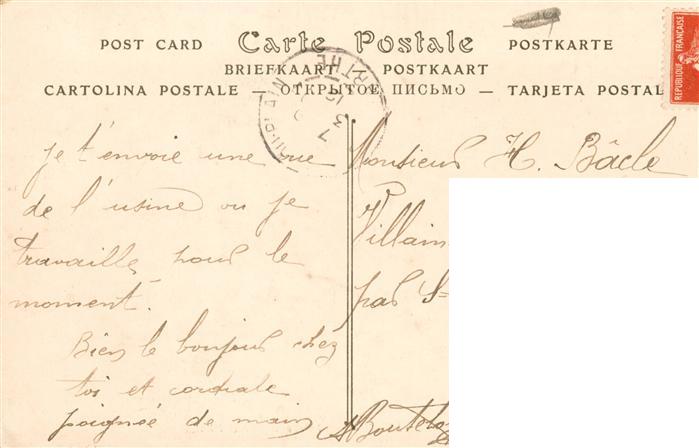 POST CARD Carte Postale POSTKARTE
BRIEFKAART POSTKAART
CARTOLINA POSTALE — ОТКРЫТОЕ ПИСЬМО — TARJETA POSTAL
REPUBLIQUE FRANÇAISE
je t'envoie une vue
de l'usine ou je
travaille pour le
moment.
Bien le bonjour chez
toi et cordiale
poignée de main
Monsieur H. Bâcle
Villain
par St